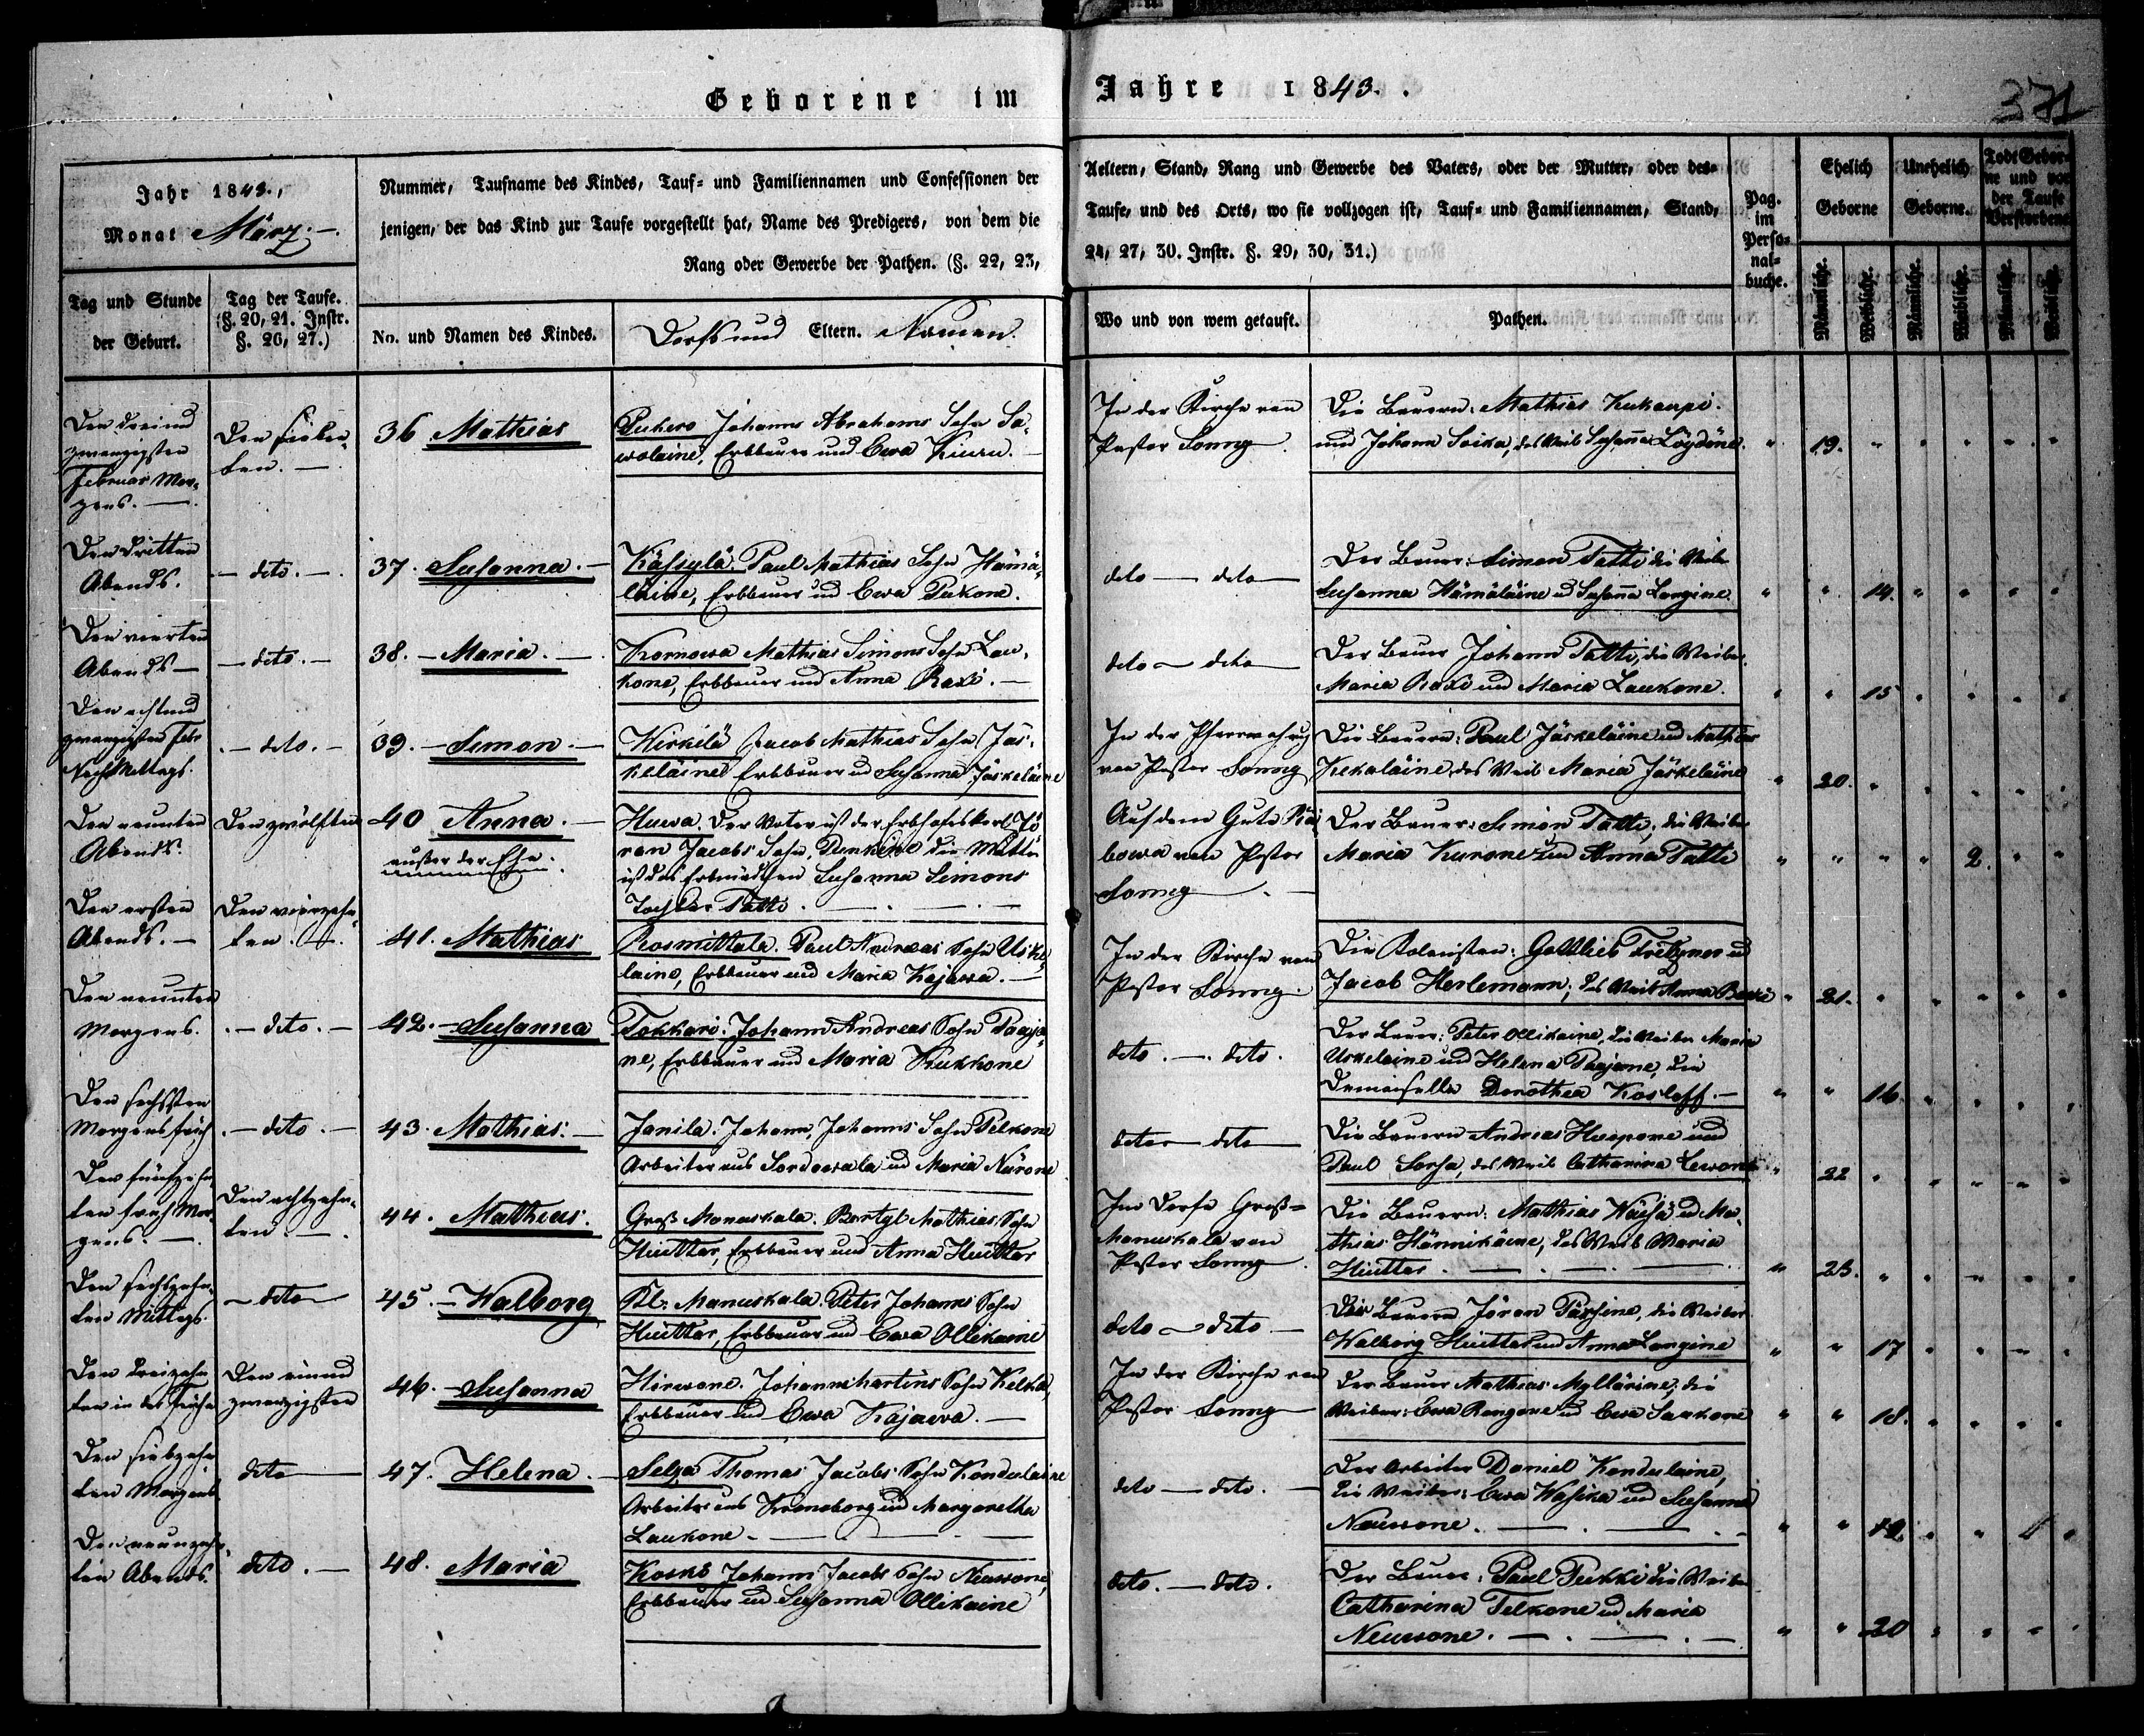 Geborene im Jahre 1843.
371
Jahr 1843.,
Monat März.
Nummer, Taufname des Kindes, Tauf- und Familiennamen und Confessionen der
jenigen, der das Kind zur Taufe vorgestellt hat, Name des Predigers, von dem die
Rang oder Gewerbe der Pathen. (§. 22, 23,
Aeltern, Stand, Rang und Gewerbe des Vaters, oder der Mutter, oder des-
Taufe, und des Orts, wo sie vollzogen ist, Tauf- und Familiennamen, Stand,
24, 27, 30. Instr. §. 29, 30, 31.)
Pag. im Perso-nal-buche.
Ehelich Geborne
Unehelich Geborne.
Todt Gebor-ne und vor der Taufe Verstorbene
Tag und Stunde
der Geburt.
Tag der Taufe.
(§. 20, 21. Instr.
§. 26, 27.)
No. und Namen des Kindes.
Dorfs und Eltern. Namen.
Wo und von wem getauft.
Pathen.
Männliche. Weibliche. Männliche. Weibliche. Männliche. Weibliche.
Den drei und
zwanzigsten
Februar Mor-
gens.
Den sieben-
ten.
36 Mathias
Puhero Johann Abrahams Sohn Sa-
wolaine, Erbbauer und Ewa
In der Kirche von
Pastor
Die Bauern: Mathias
und Johann Soika, das Weib Susanna
19.
Den dritten
Abends.
dito.
37. Susanna.
Paul Mathias Sohn Hämä-
läine, Erbbauer und Ewa Pukone.
dito dito
Der Bauer: Simon Tatti die Weiber
Susanna Hämäläine und Susanna Langine.
14.
Den vierten
Abends
dito.
38. Maria.
Kornowa Mathias Simons Sohn Lau-
kone, Erbbauer und Anna Raxi.
dito dito
Der Bauer Johann Tatti, die Weiber
Maria Raxi und Maria Laukone.
15
Den acht und
zwanzigsten Febr
Nachmittags.
dito.
39. Simon.
Kirkilä Jacob Mathias Sohn Jäs-
keläine Erbbauer und Susanna Jäskeläine
In der
von Pastor
Die Bauern: Paul Jäskeläine und Mathias
Kekaläine, das Weib Maria Jäskeläine
20.
Den neunten
Abends.
Den zwölften
40 Anna.
außer der Ehe.
Huwa. Der Vater ist der Jö-
ran Jacobs Sohn, die Mutter
ist das Susanna Simons
Tochter Tatti.
Auf dem Gute Rä-
bowa von Pastor
Der Bauer: Simon Tatti, die Weiber
Maria Kurone und Anna Tatti
2.
Den ersten
Abends.
Den vierzehn-
ten.
41. Mathias
Rosmittala. Paul Andreas Sohn Uske-
laine, Erbbauer und Maria Kajawa.
In der Kirche von
Pastor
Die Kolonisten: Gottlieb und
Jacob Herlemann; das Weib Anna
21.
Den neunten
Morgens.
dito.
42. Susanna
Tokkari. Johann Andreas Sohn Paaja-
ne, Erbbauer und Maria Kukkone
dito. dito.
Der Bauer: Peter Ollikaine, die Weiber Maria
Uskelaine und Helena Paajane, die
Demoiselle Dorothea Kosloff.
16.
Den sechsten
Morgens früh
dito.
43. Mathias.
Janila. Johann, Johanns Sohn Pelkone
Arbeiter aus Sordowala und Maria Närone
dito dito
Die Bauern Andreas und
Paul Sorsa, das Weib Catharina Lewone
22
Den fünfzehn-
ten früh Mor-
gens.
Den achtzehn-
ten.
44. Mathias.
Groß Manuskala. Mathias Sohn
Huittar, Erbbauer und Anna Huittar
Im Dorfe Groß-
Manuskala von
Pastor
Die Bauern: Mathias und Ma-
thias Hännikäine, das Weib Maria
Huittar.
23.
Den sechszehn-
ten Mittags.
dito
45. Walborg
Kl. Manuskala. Peter Johanns Sohn
Huittar, Erbbauer und Ewa Ollikaine
dito dito
Der Bauer Jöran, die Weiber
Walborg Huittar und Anna Langine
17
Den dreizehn-
ten in der Frühe
Den ein und
zwanzigsten
46. Susanna
Hirwone. Johann Martins Sohn Kelka,
Erbbauer und Ewa Kajawa.
In der Kirche von
Pastor
Der Bauer Mathias Myllärine; die
Weiber: Ewa Rongone und Ewa Laukone
18.
Den siebzehn-
ten Morgens
dito
47. Helena.
Selza Thomas Jacobs Sohn Kondulaine
Arbeiter aus Kronoborg und Margaretha
Laukone.
dito dito.
Der Arbeiter Daniel Kondulaine,
die Weiber: Ewa und Susanna
Neuwone.
19.
Den neunzehn-
ten Abends.
dito.
48. Maria
Koskö Johann Jacobs Sohn Neuwone,
Erbbauer und Susanna Ollikaine
dito. dito.
Der Bauer: Paul Pukki die Weiber
Catharina Telkone und Maria
Neuwone.
20